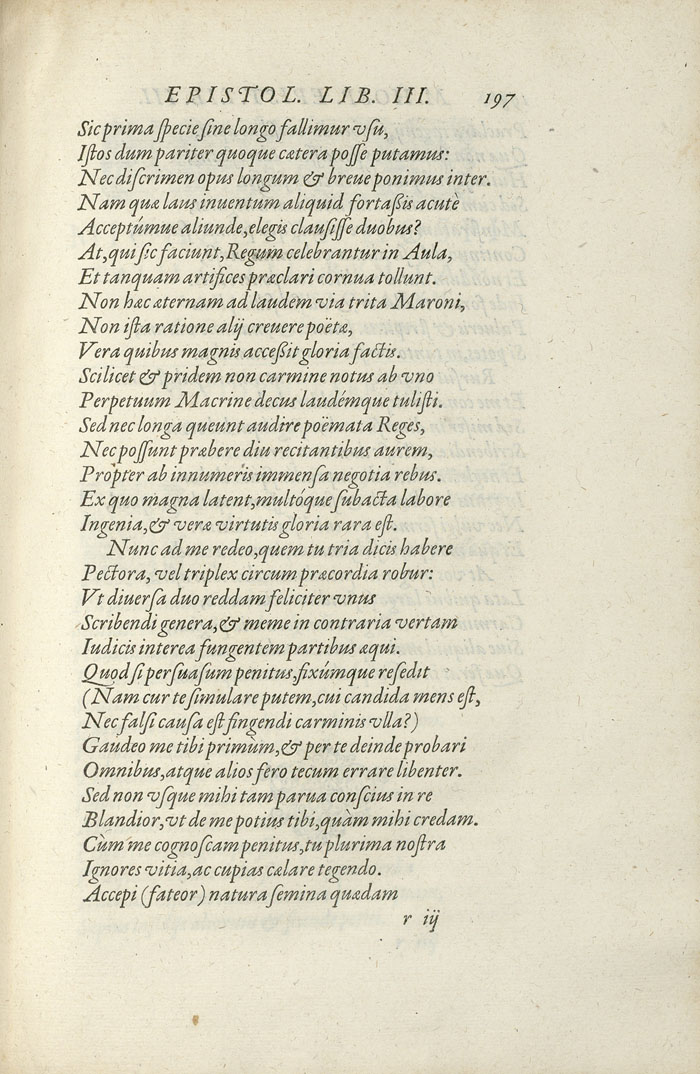 EPISTOL. LIB. III. 197
Sic prima ſpecie ſine longo fallimur vſu,
Iſtos dum pariter quoque cætera poſſe putamus:
Nec diſcrimen opus longum & breue ponimus inter.
Nam quæ laus inuentum aliquid fortaßis acutè
Acceptúmue aliunde,elegis clauſiſſe duobus?
At,qui ſic faciunt,Regum celebrantur in Aula,
Et tanquam artifices præclari cornua tollunt.
Non hæc æternam ad laudem via trita Maroni,
Non iſta ratione alij creuere poëtæ,
Vera quibus magnis acceßit gloria factis.
Scilicet & pridem non carmine notus ab vno
Perpetuum Macrine decus laudémque tuliſti.
Sed nec longa queunt audire poëmata Reges,
Nec poſſunt præbere diu recitantibus aurem,
Propter ab innumeris immenſa negotia rebus.
Ex quo magna latent,multóque ſubacta labore
Ingenia,& veræ virtutis gloria rara eſt.
Nunc ad me redeo,quem tu tria dicis habere
Pectora, vel triplex circum præcordia robur:
Vt diuerſa duo reddam feliciter vnus
Scribendi genera,& meme in contraria vertam
Iudicis interea fungentem partibus æqui.
Quod ſi perſuaſum penitus,fixúmque reſedit
(Nam cur te ſimulare putem,cui candida mens eſt,
Nec falſi cauſa eſt fingendi carminis vlla?)
Gaudeo me tibi primùm,& per te deinde probari
Omnibus,atque alios fero tecum errare libenter.
Sed non vſque mihi tam parua conſcius in re
Blandior,vt de me potius tibi,quàm mihi credam.
Cùm me cognoſcam penitus,tu plurima noſtra
Ignores vitia,ac cupias cælare tegendo.
Accepi (fateor) natura ſemina quædam
r iij